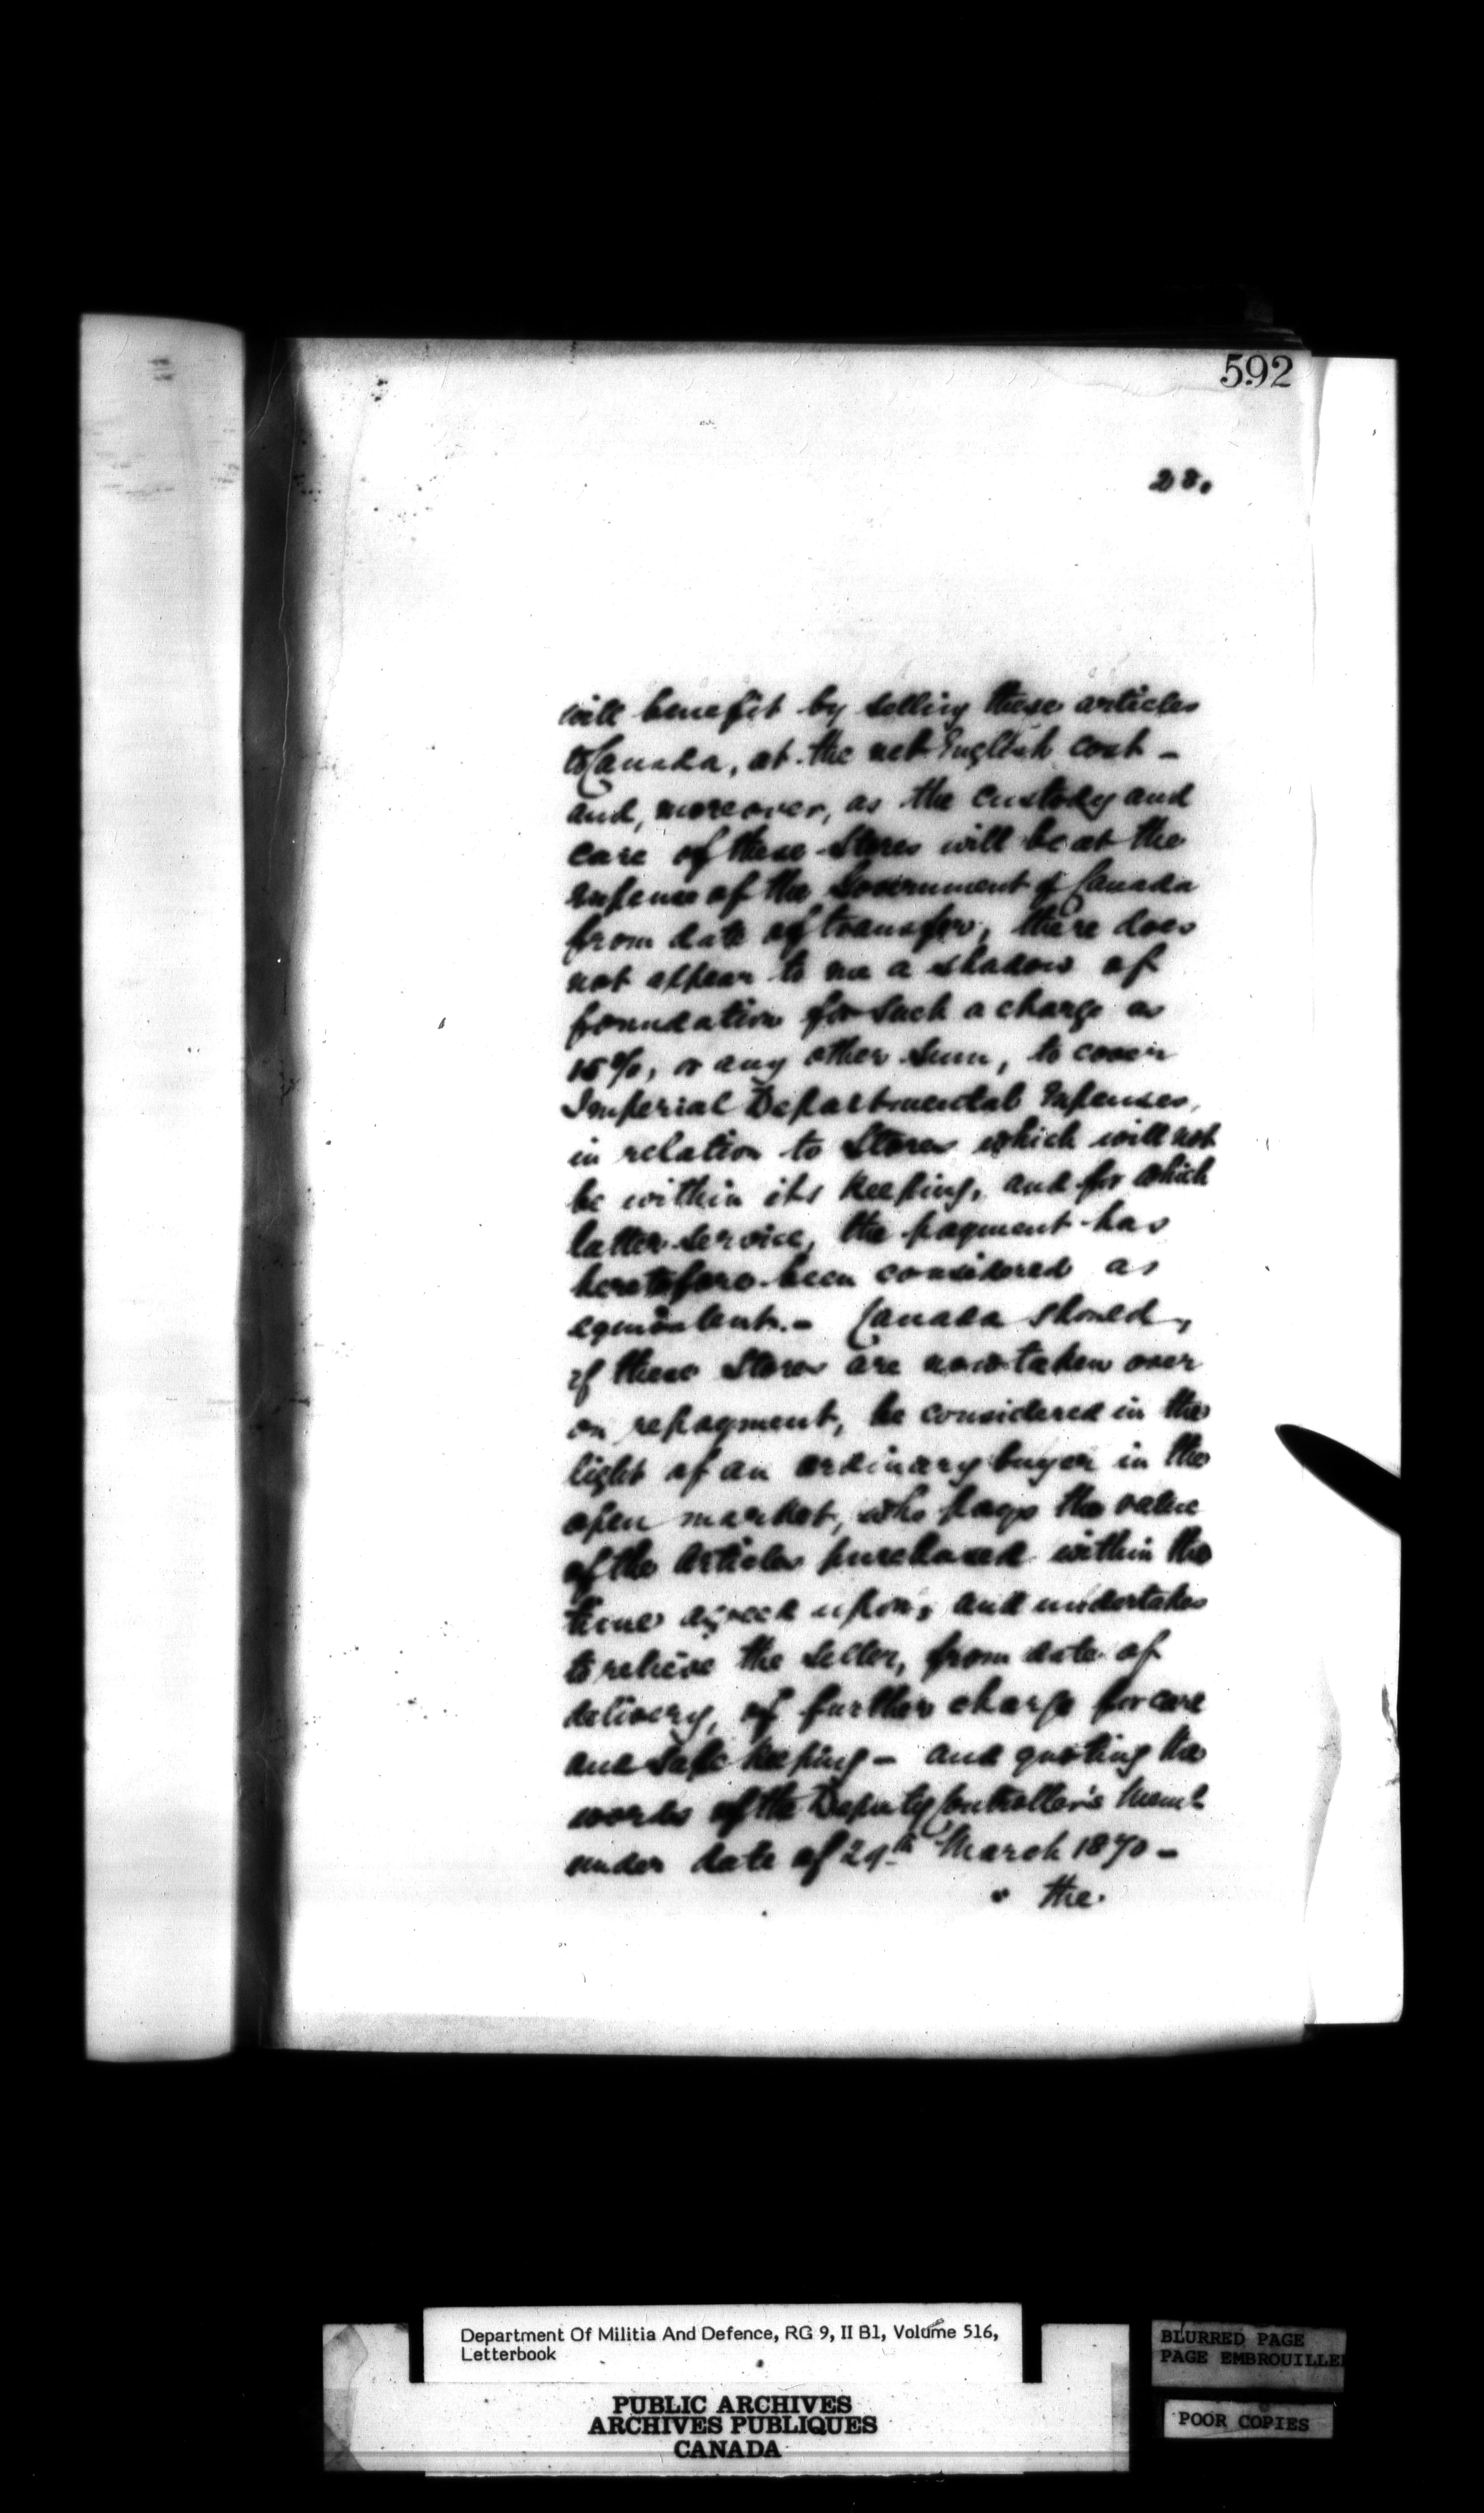 592
28.
will benefit by selling these articles
to Canada, at the net English cost -
and, moreover, as the custody and
care of these Stores will be at the
expense of the Government of Canada
from date of transfer, there does
not appear to me a shadow of
foundation for such a charge as
15%, or any other sum, to cover
Imperial Departmental Expenses,
in relation to Stores which will not
be within its keeping, and for which
latter service, the payment has
heretofore been considered as
equivalent. - Canada should,
if these Stores are now taken over
on repayment, be considered in the
light of an ordinary buyer in the
open market, who pays the value
of the articles purchased within the
time agreed upon, and undertakes
to relieve the seller, from date of
delivery, of further charge for care
and safe keeping - and quoting the
words of the Deputy Controller's
under date of 29th March 1870 -
" the
Department Of Militia And Defence, RG 9, II B1, Volume 516,
Letterbook
PUBLIC ARCHIVES
ARCHIVES PUBLIQUES
CANADA
BLURRED PAGE
PAGE EMBROUILLE
POOR COPIES